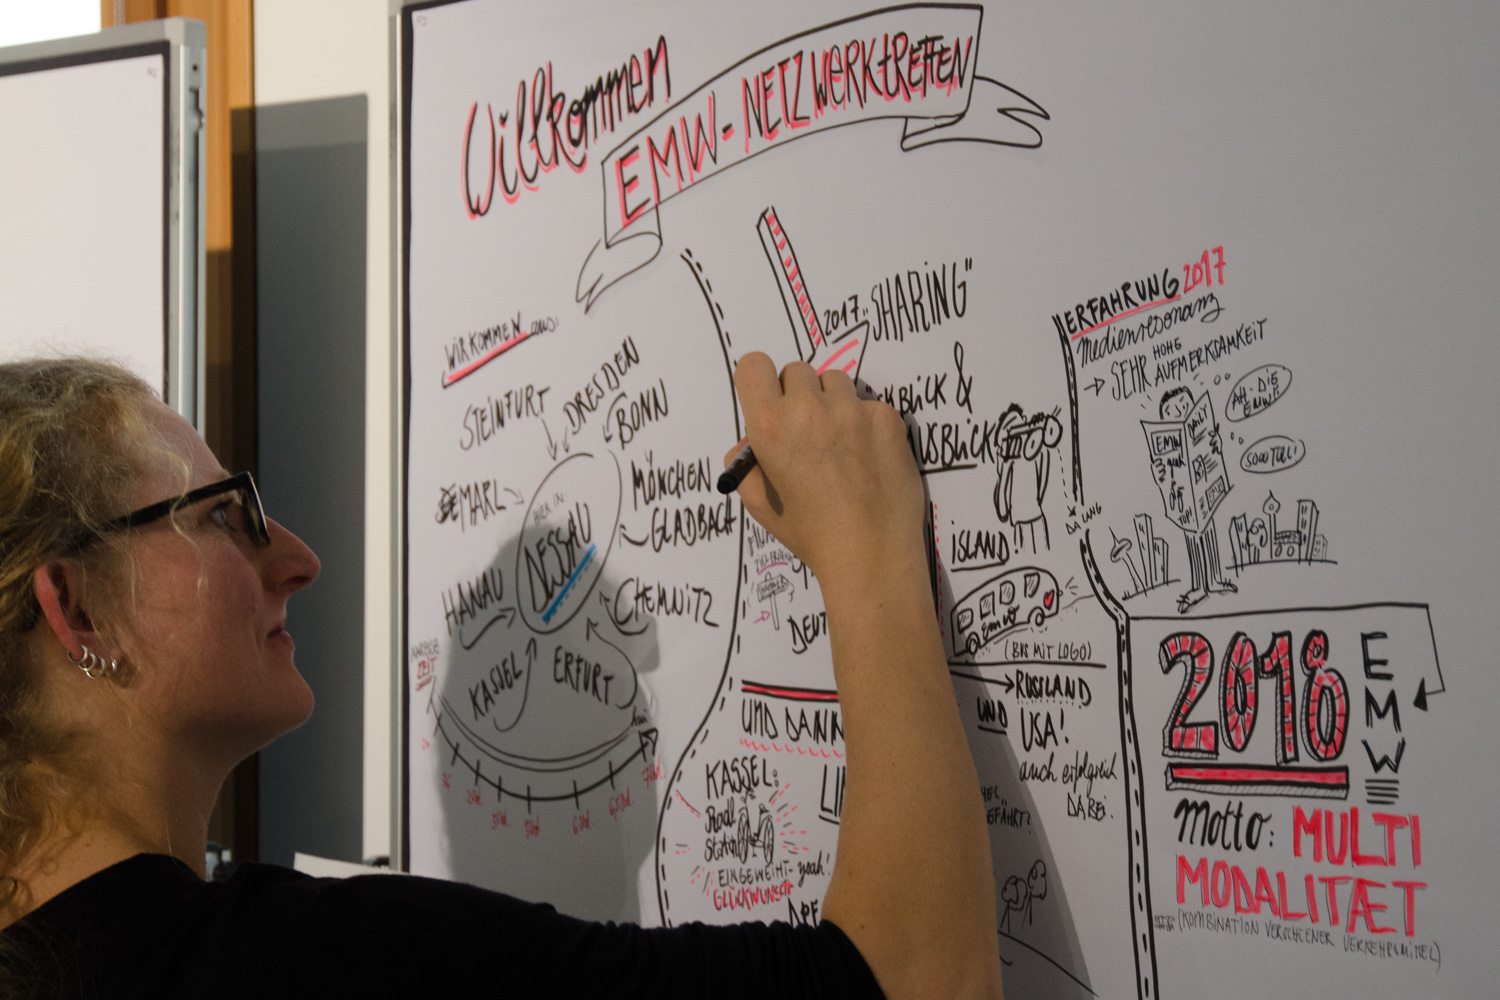 Willkommen
EMW-NETZWERKTREFFEN
WIR KOMMEN aus:
STEINFURT
DRESDEN
BONN
MARL
MÖNCHEN
GLADBACH
HIER IN
DESSAU
HANAU
CHEMNITZ
KASSEL
ERFURT
ANREISE
ZEIT
2017 "SHARING"
BLICK &
AUSBLICK
ISLAND!
DEUT
(BUS MIT LOGO)
emw
RUSSLAND
UND USA!
auch erfolgreich
DABEI.
UND DANN
KASSEL:
Radl
Station
EINGEWEIHT- yeah!
GLÜCKWUNSCH
ERFAHRUNG 2017
Medienresonanz
→ SEHR HOHE
AUFMERKSAMKEIT
AH-DIE
EMW!
SOOO TOLL!
EMW
DAILY
DA LANG
2018 EMW
Motto: MULTI
MODALITÆT
(KOMBINATION VERSCHIENER VERKEHRSMITTEL)